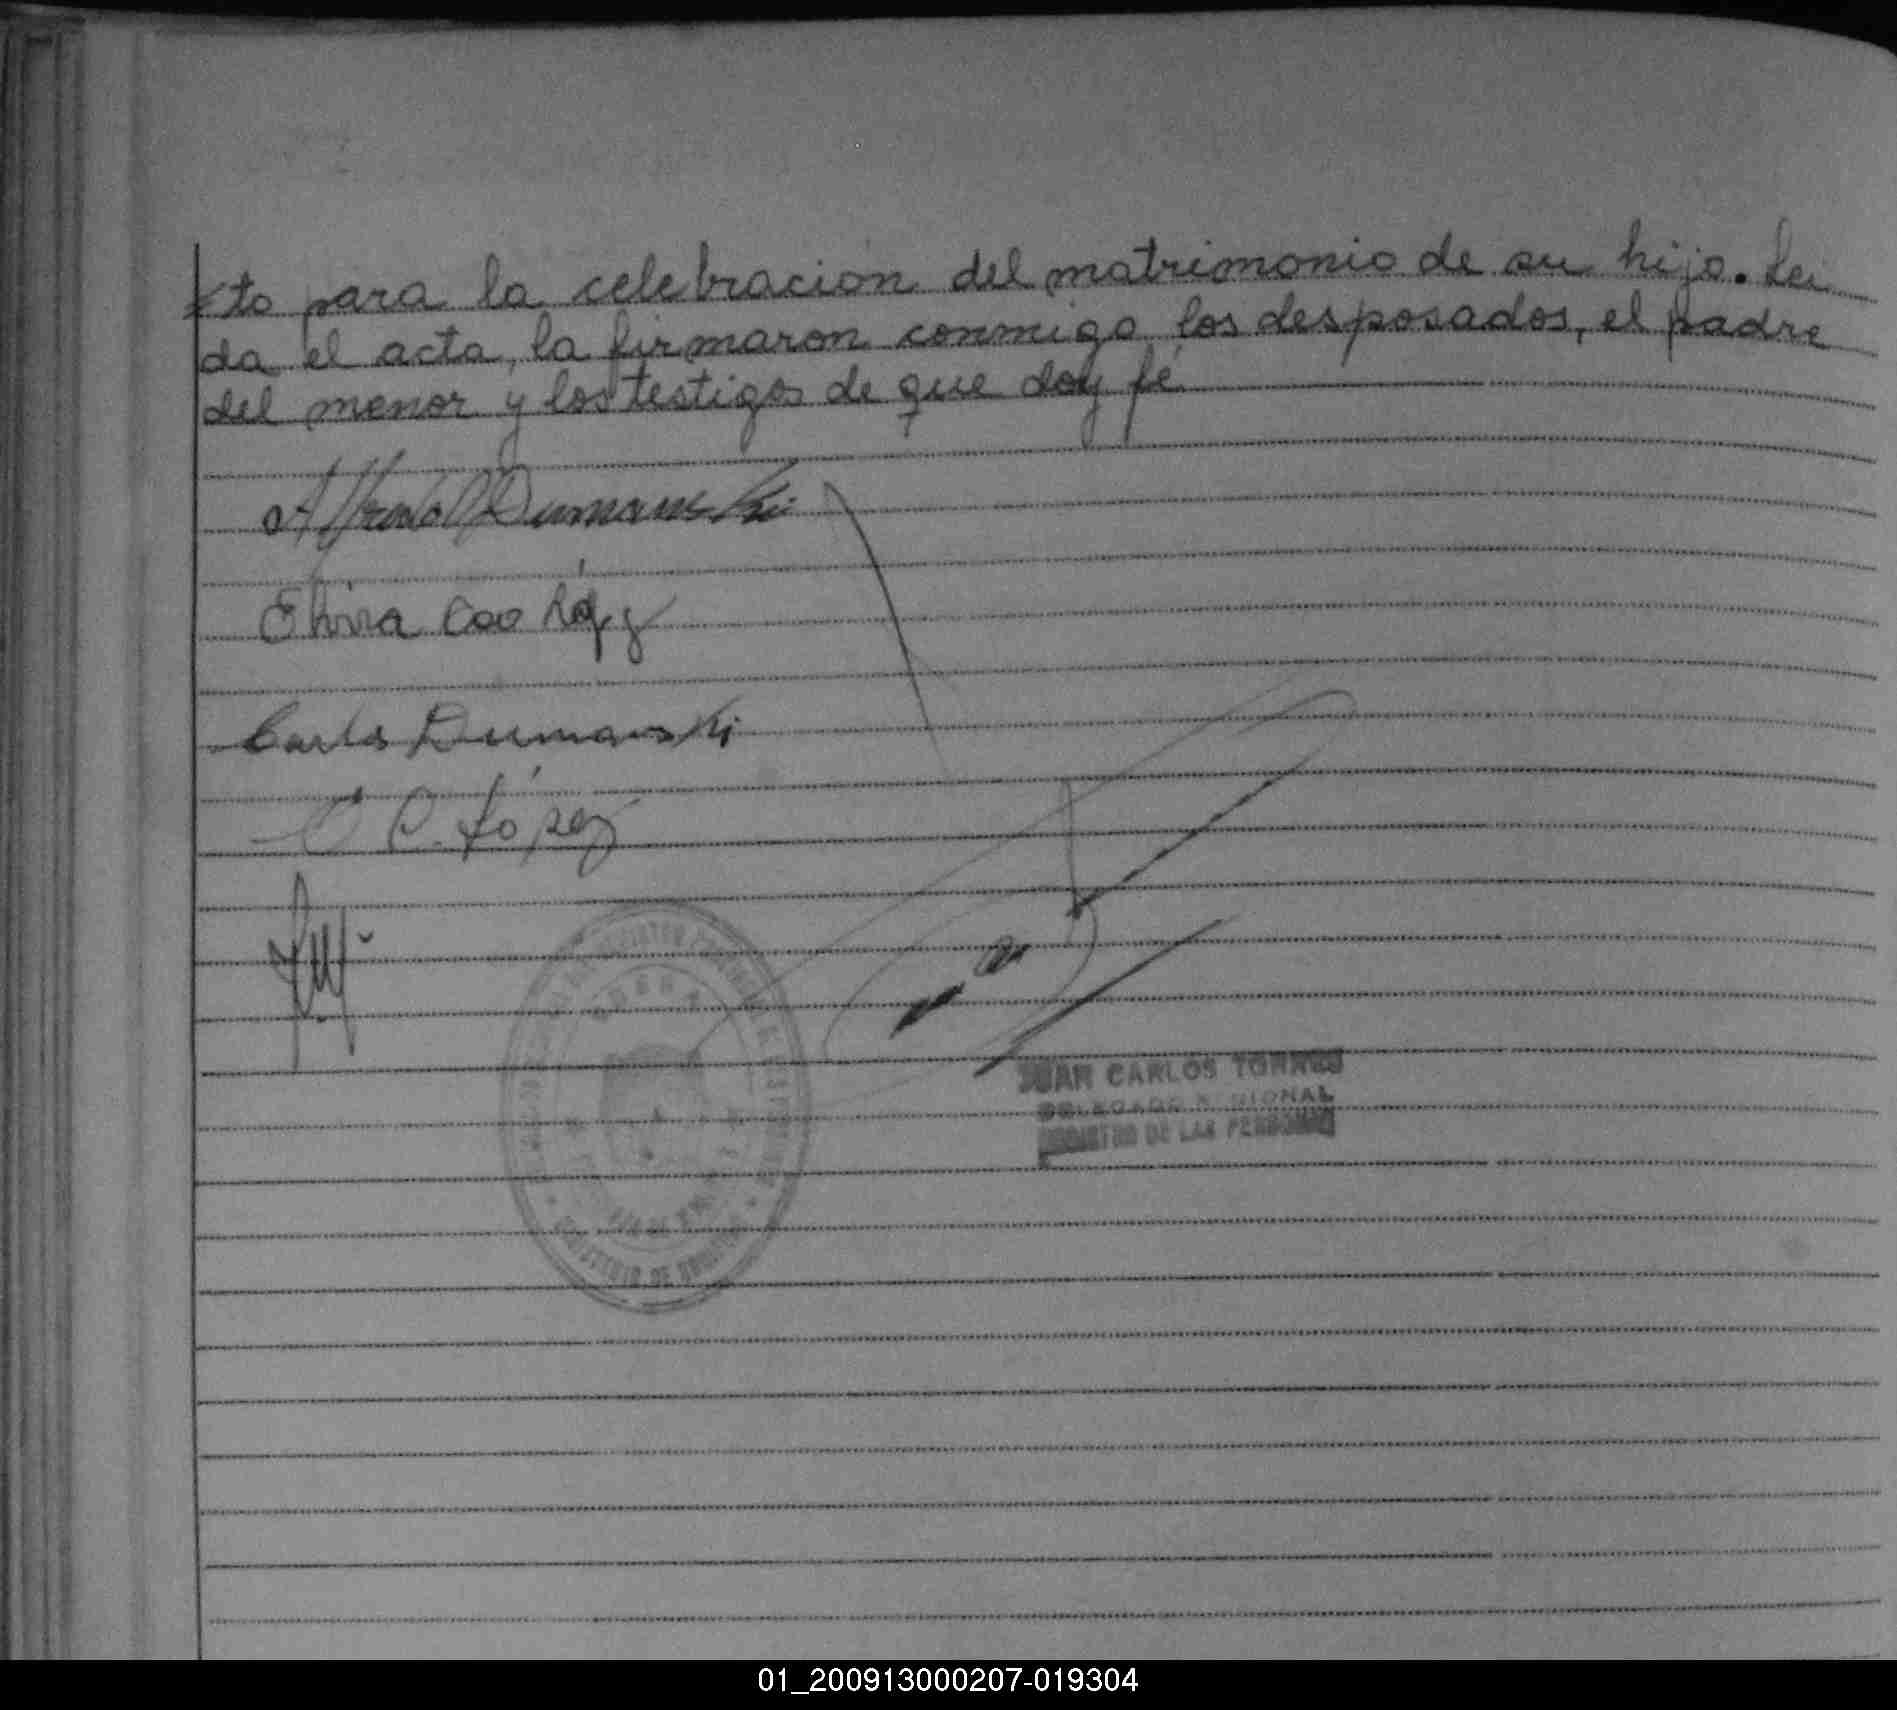 to para la celebración del matrimonio de su hijo. Lei
da el acta, la firmaron conmigo los desposados, el padre
del menor y los testigos de que doy fé
Alfredo Dumanski
Elvira
Carlos Dumanski
C. López
JUAN CARLOS TORRES
DELEGADO REGIONAL
REGISTRO DE LAS PERSONAS
01_200913000207-019304